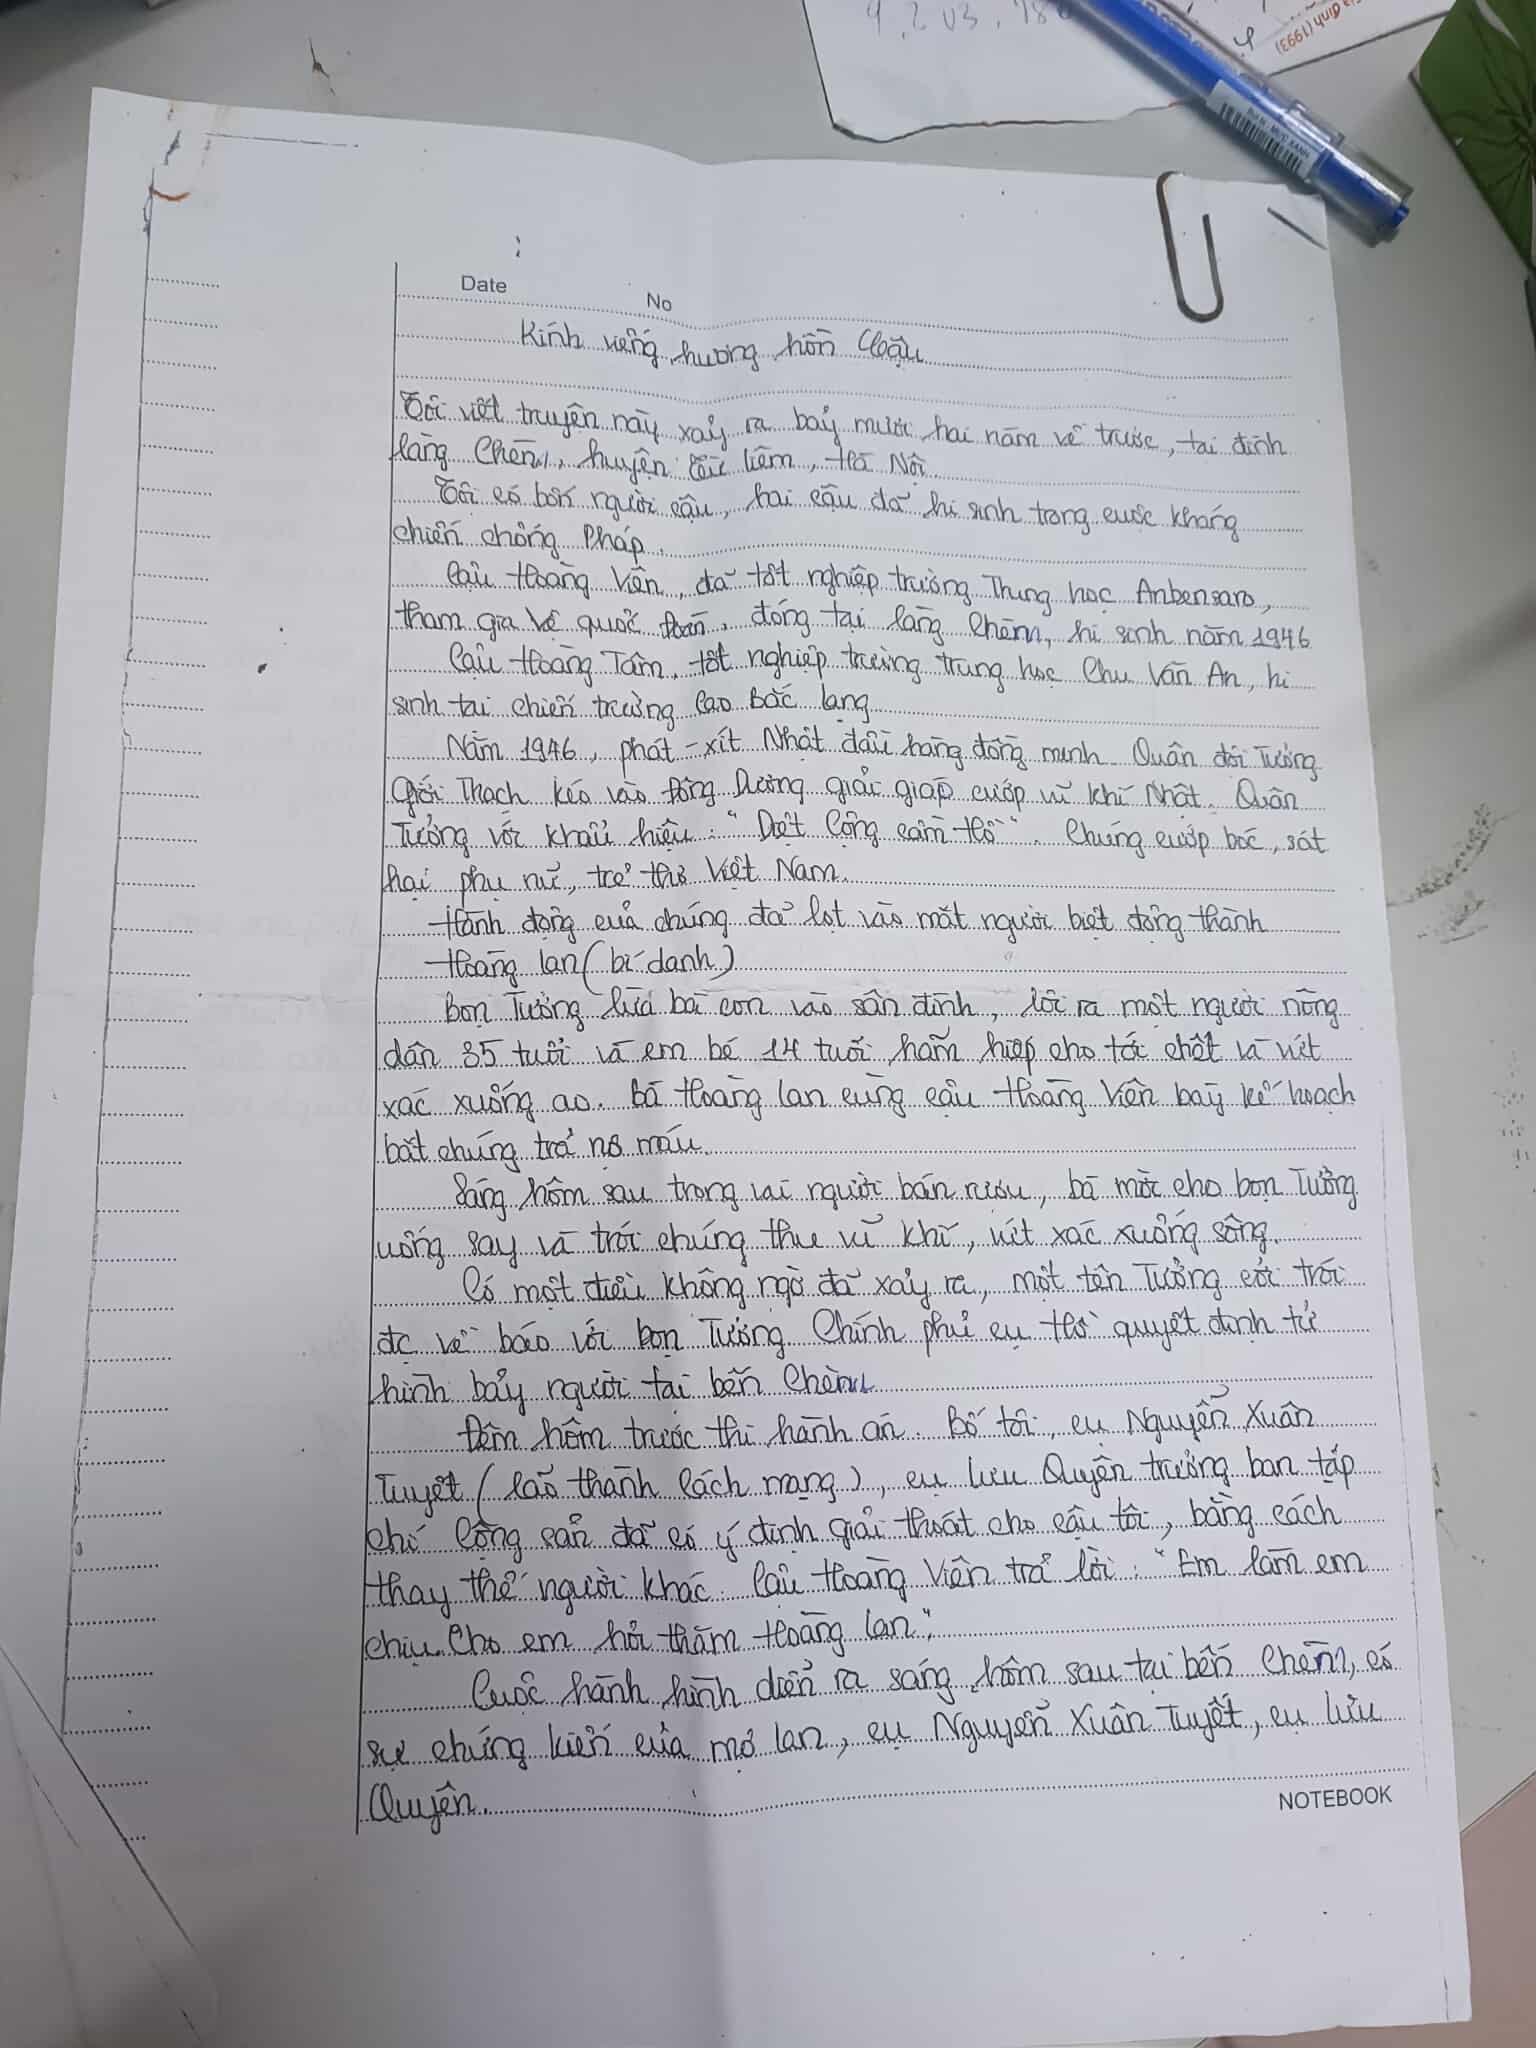 9.203.78
đình (1993)
BÚT MỰC XANH
Date No
Kính viếng hương hồn Cậu
Tôi viết truyện này xảy ra bảy mươi hai năm về trước, tại đình
làng Chèm, huyện Từ Liêm, Hà Nội.
Tôi có bốn người cậu, hai cậu đã hi sinh trong cuộc kháng
chiến chống Pháp.
Cậu Hoàng Viên, đã tốt nghiệp trường Trung học Anbensaro,
tham gia Vệ quốc đoàn, đóng tại làng Chèm, hi sinh năm 1946
Cậu Hoàng Tâm, tốt nghiệp trường trung học Chu Văn An, hi
sinh tại chiến trường Cao Bắc Lạng
Năm 1946, phát-xít Nhật đầu hàng đồng minh. Quân đội Tưởng
Giới Thạch kéo vào Đông Dương giải giáp cướp vũ khí Nhật. Quân
Tưởng với khẩu hiệu: "Diệt Cộng cầm Hồ". Chúng cướp bóc, sát
hại phụ nữ, trẻ thơ Việt Nam.
Hành động của chúng đã lọt vào mắt người biệt động thành
Hoàng Lan (bí danh)
Bọn Tưởng lùa bà con vào sân đình, lôi ra một người nông
dân 35 tuổi và em bé 14 tuổi hãm hiếp cho tới chết và vứt
xác xuống ao. Bà Hoàng Lan cùng cậu Hoàng Viên bày kế hoạch
bắt chúng trả nợ máu.
Sáng hôm sau trong vai người bán rượu, bà mời cho bọn Tưởng
uống say và trói chúng thu vũ khí, vứt xác xuống sông.
Có một điều không ngờ đã xảy ra, một tên Tưởng cởi trói
đc về báo với bọn Tưởng. Chính phủ cụ Hồ quyết định tử
hình bảy người tại bến Chèm
Đêm hôm trước thi hành án. Bố tôi, cụ Nguyễn Xuân
Tuyết (lão thành Cách mạng), cụ Lưu Quyên trưởng ban tạp
chí Cộng sản đã có ý định giải thoát cho cậu tôi, bằng cách
thay thế người khác. Cậu Hoàng Viên trả lời: "Em làm em
chịu. Cho em hỏi thăm Hoàng Lan".
Cuộc hành hình diễn ra sáng hôm sau tại bến Chèm, có
sự chứng kiến của mợ Lan, cụ Nguyễn Xuân Tuyết, cụ Lưu
Quyên.
NOTEBOOK